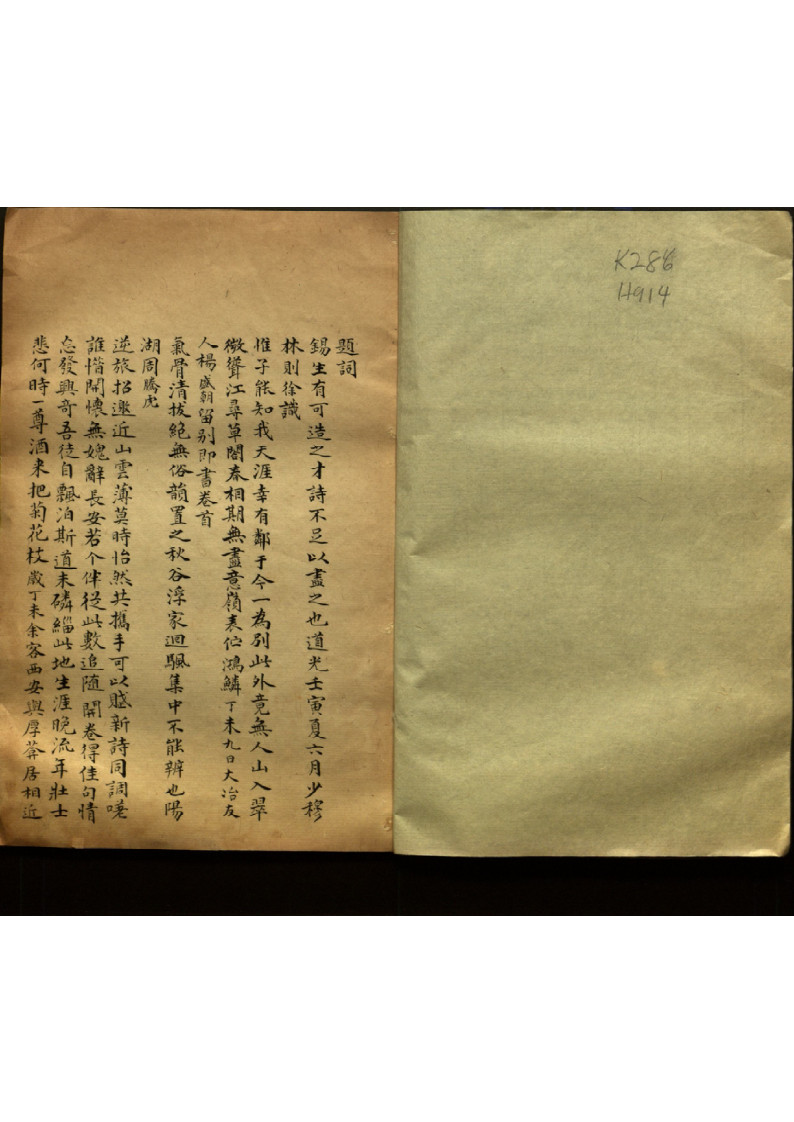 K286
H914
題詞
錫生有可造之才詩不足以盡之也道光壬寅夏六月少穆
林則徐識
惟子能知我天涯幸有鄰于今一為別此外竟無人山入翠
微聳江尋草閣春相期無盡意嶺表佇鴻鱗丁未九日大冶友
人楊盛朝留别即書卷首
氣骨清拔絕無俗韻置之秋谷浮家迴颿集中不能辨也陽
湖周騰虎
逆旅招邀近山雲薄莫時怡然共攜手可以賦新詩同調嗟
誰偕開懷無媿辭長安若个伴從此數追隨開卷得佳句情
忘發興奇吾徒自飄泊斯道未磷緇此地生涯晚流年壯士
悲何時一尊酒来把菊花枝歲丁未余客西安與厚莽居相近